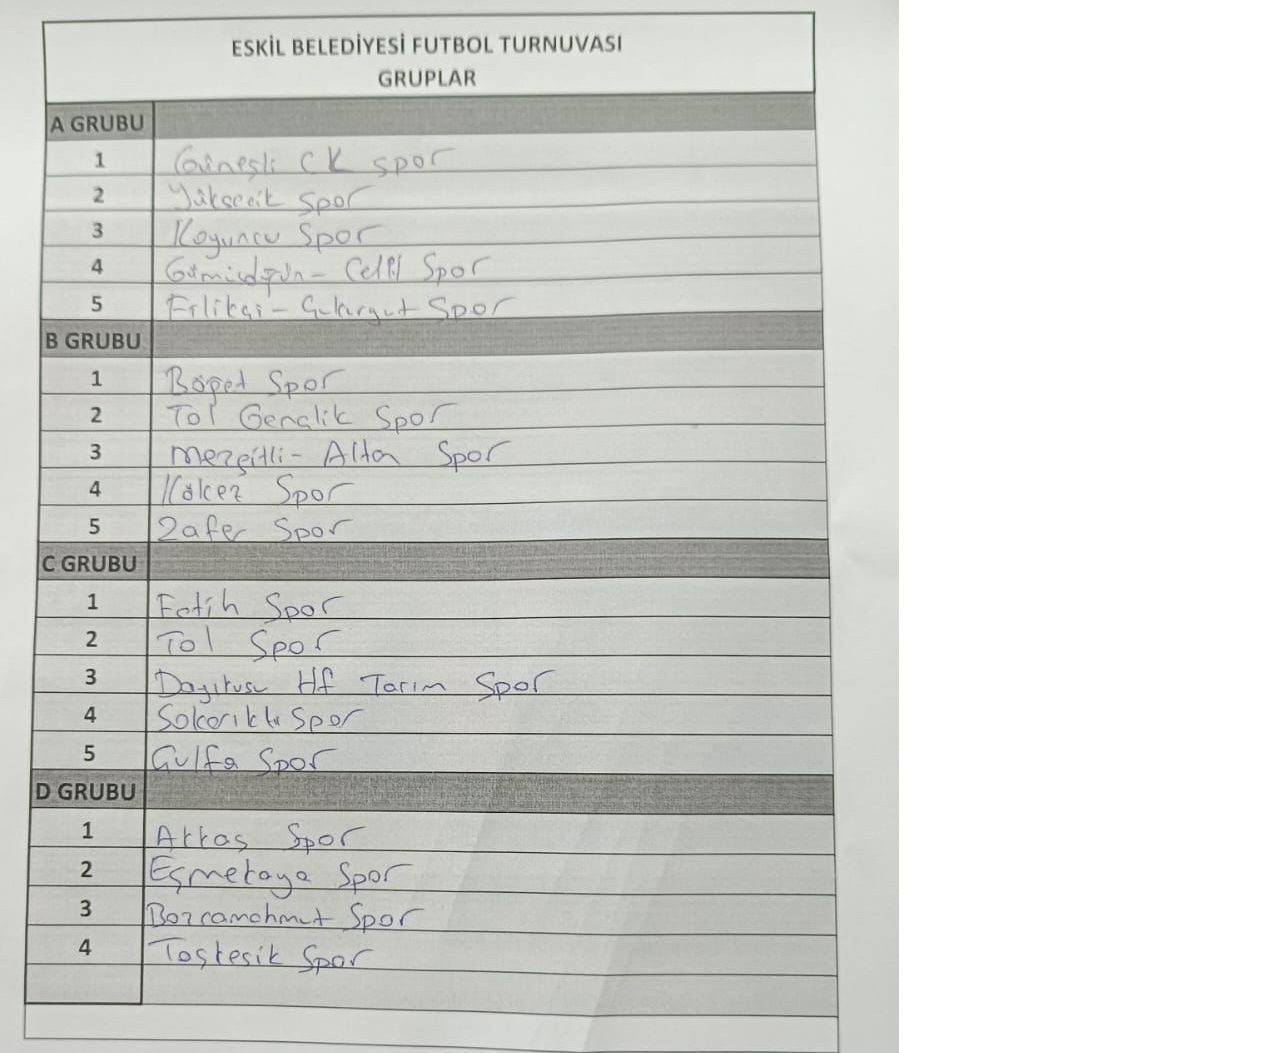 ESKİL BELEDİYESİ FUTBOL TURNUVASI
GRUPLAR
A GRUBU
1 Güneşli CK Spor
2 Spor
3 Koyuncu Spor
4 Celil Spor
5 Spor
B GRUBU
1 Böget Spor
2 Tol Gençlik Spor
3 Spor
4 Kökez Spor
5 Zafer Spor
C GRUBU
1 Fatih Spor
2 Tol Spor
3 Hf Tarım Spor
4 Spor
5 Gulfa Spor
D GRUBU
1 Akkaş Spor
2 Eşmekaya Spor
3 Bozcamahmut Spor
4 Taşkesik Spor